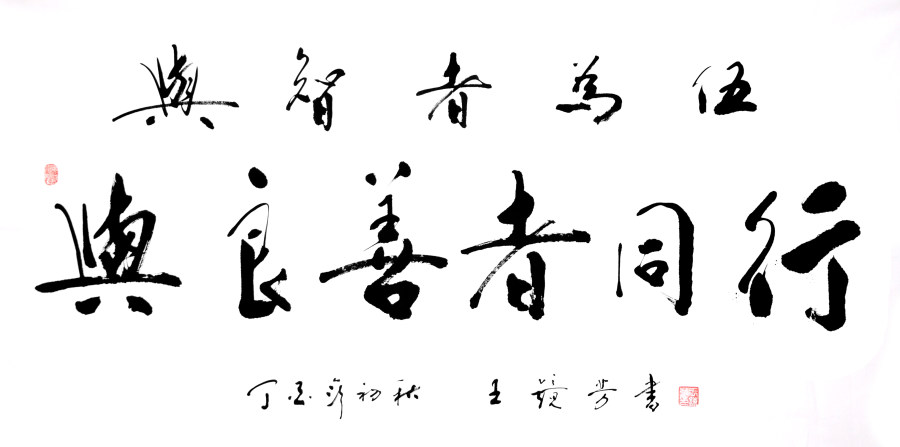 與智者為伍
與良善者同行
丁酉岁初秋 王 芳書